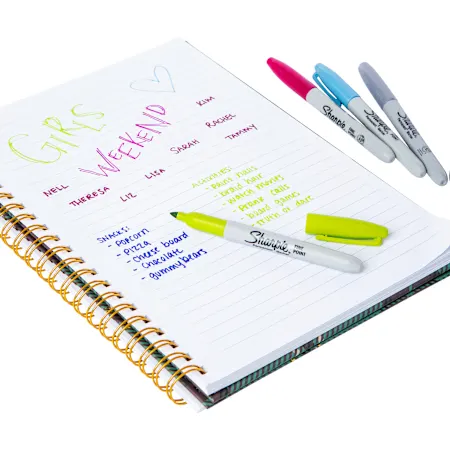 GIRLS
WEEKEND
NELL
THERESA
LIZ
LISA
SARAH
RACHEL
KIM
TAMMY
SNACKS!
- POPCORN
- PIZZA
- Cheese board
- Chocolate
- gummy bears
ACTIVITIES!
- Paint nails
- braid hair
- Watch movies
- Prank calls
- board games
- truth or dare
Sharpie
FINE POINT
Sharpie
Sharpie
Sharpie